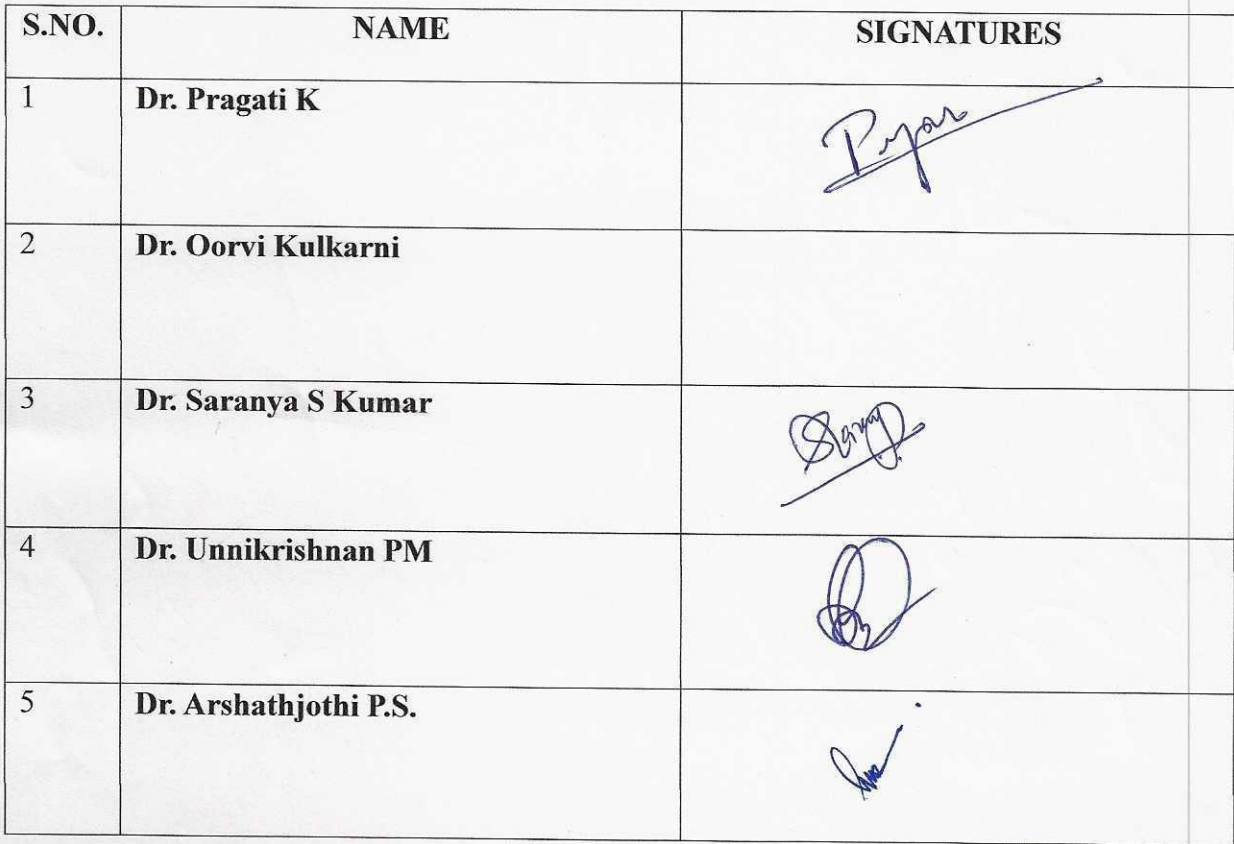 S.NO. NAME SIGNATURES
1 Dr. Pragati K
2 Dr. Oorvi Kulkarni
3 Dr. Saranya S Kumar
4 Dr. Unnikrishnan PM
5 Dr. Arshathjothi P.S.